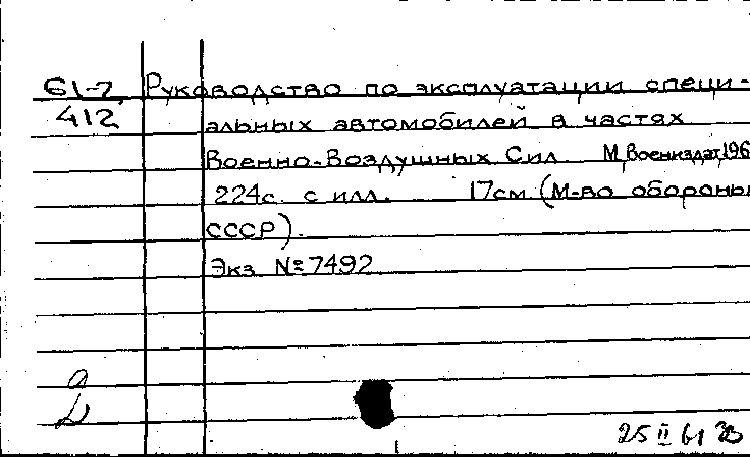 61-7 Руководство по эксплуатации специ-
412 альных автомобилей в частях
Военно-Воздушных Сил М, Воениздат, 196
224с. с илл. 17см (М-во обороны
СССР).
Экз №7492
25 II 61